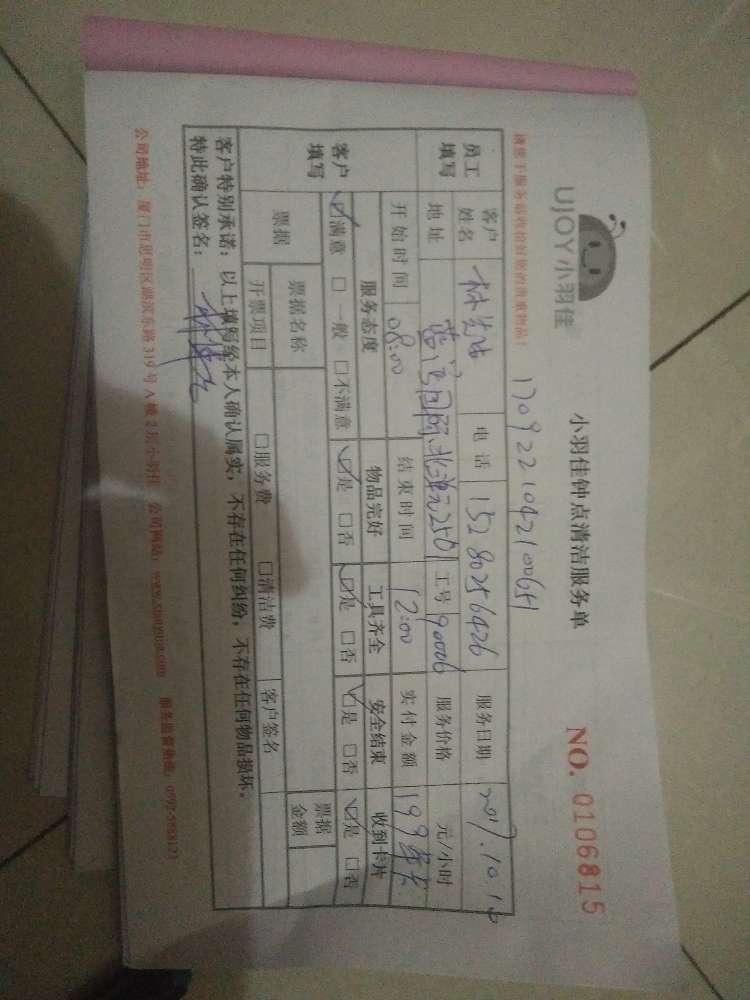 请您于服务前收拾好您的贵重物品！
UJOY小羽佳
小羽佳钟点清洁服务单
NO. 0106815
员工填写
客户姓名 电话 15280256426 服务日期 2017.10.1
地址 北单元2501 工号 90006 服务价格 元/小时
开始时间 08:00 结束时间 12:00 实付金额 199
客户填写
服务态度 物品完好 工具齐全 安全结束 收到卡片
☑满意 □一般 □不满意 ☑是 □否 ☑是 □否 ☑是 □否 ☑是 □否
票据 票据名称 票据金额
开票项目 □服务费 □清洁费 客户签名
客户特别承诺：以上填写经本人确认属实，不存在任何纠纷，不存在任何物品损坏。
特此确认签名：
公司地址：厦门市思明区湖滨东路319号A楼2层小羽佳 公司网站： 服务监督热线：